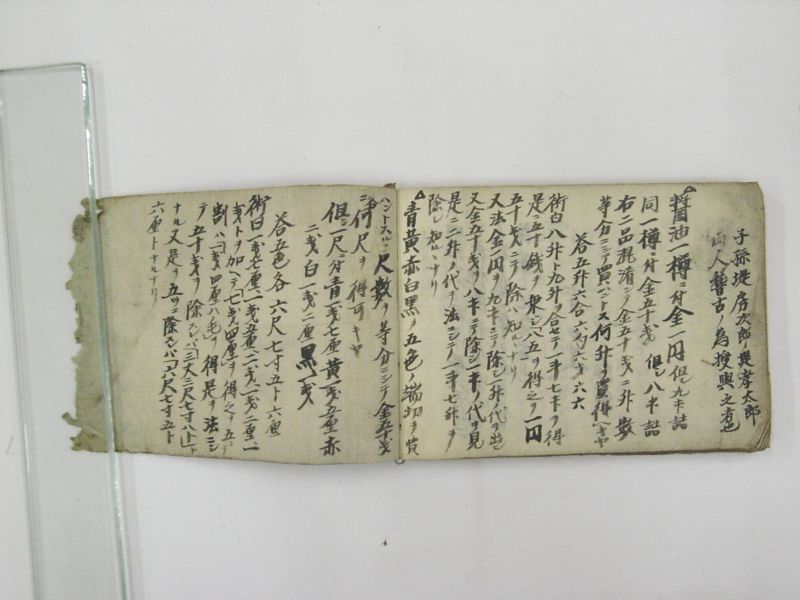 子孫堤房次郎堤孝太郎
両人稽古ノ為授與之者也
醤油一樽ニ付金一円但シ九升詰
同一樽ニ付金五十戋但シ八升詰
右二品混淆シテ金五十戋ニ升数
等分ニシテ買ハントス何升ヲ買得ヘキヤ
答五升六合六勺六才六六
術曰八升ト九升ヲ合セテ一斗七升ヲ得
是ニ五十銭ヲ乗シ八五ヲ得之ヲ一円
五十戋ニテ除ハ知ルヽナリ
又法金一円ヲ九升ニテ除シ一升ノ代ヲ出シ
又金五十戋ヲ八升ニテ除シ一升ノ代ヲ見
是ニ二升ノ代ヲ法ニシテ一斗七升ヲ
除シ知ルヽナリ
青黄赤白黒ノ五色ノ端切ヲ買
ハントスルニ尺数ヲ等分ニシテ金五十戋
ニ何尺ヲ得可キヤ
但シ一尺ニ付青一戋七厘黄一戋五厘赤
二戋白一戋二厘黒一戋
答五色各六尺七寸五卜六厘
術曰一戋七厘一戋五厘二戋一戋二厘一
戋トヲ加ヘテ七戋四厘ヲ得之ヲ五ニテ
割ハ一戋四厘八毛ヲ得是ヲ法ニシ
テ五十戋ヲ除スレハ三丈三尺七寸八卜ト
ナル又是ヲ五ツニ除スレハ六尺七寸五卜
六厘トナルナリ